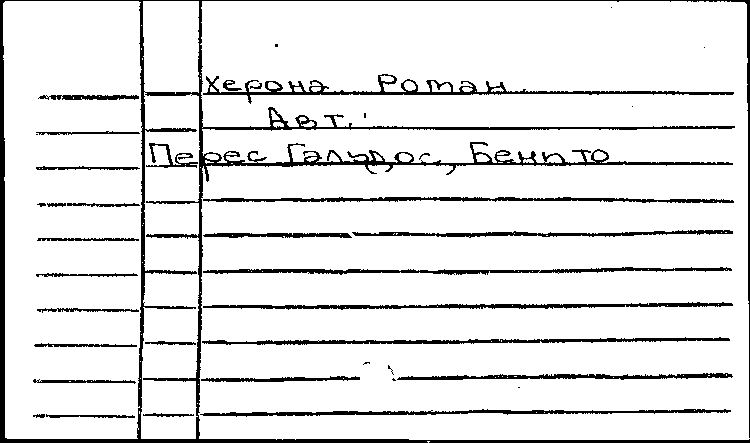 Херона. Роман.
Авт.:
Перес Гальдос, Бенито